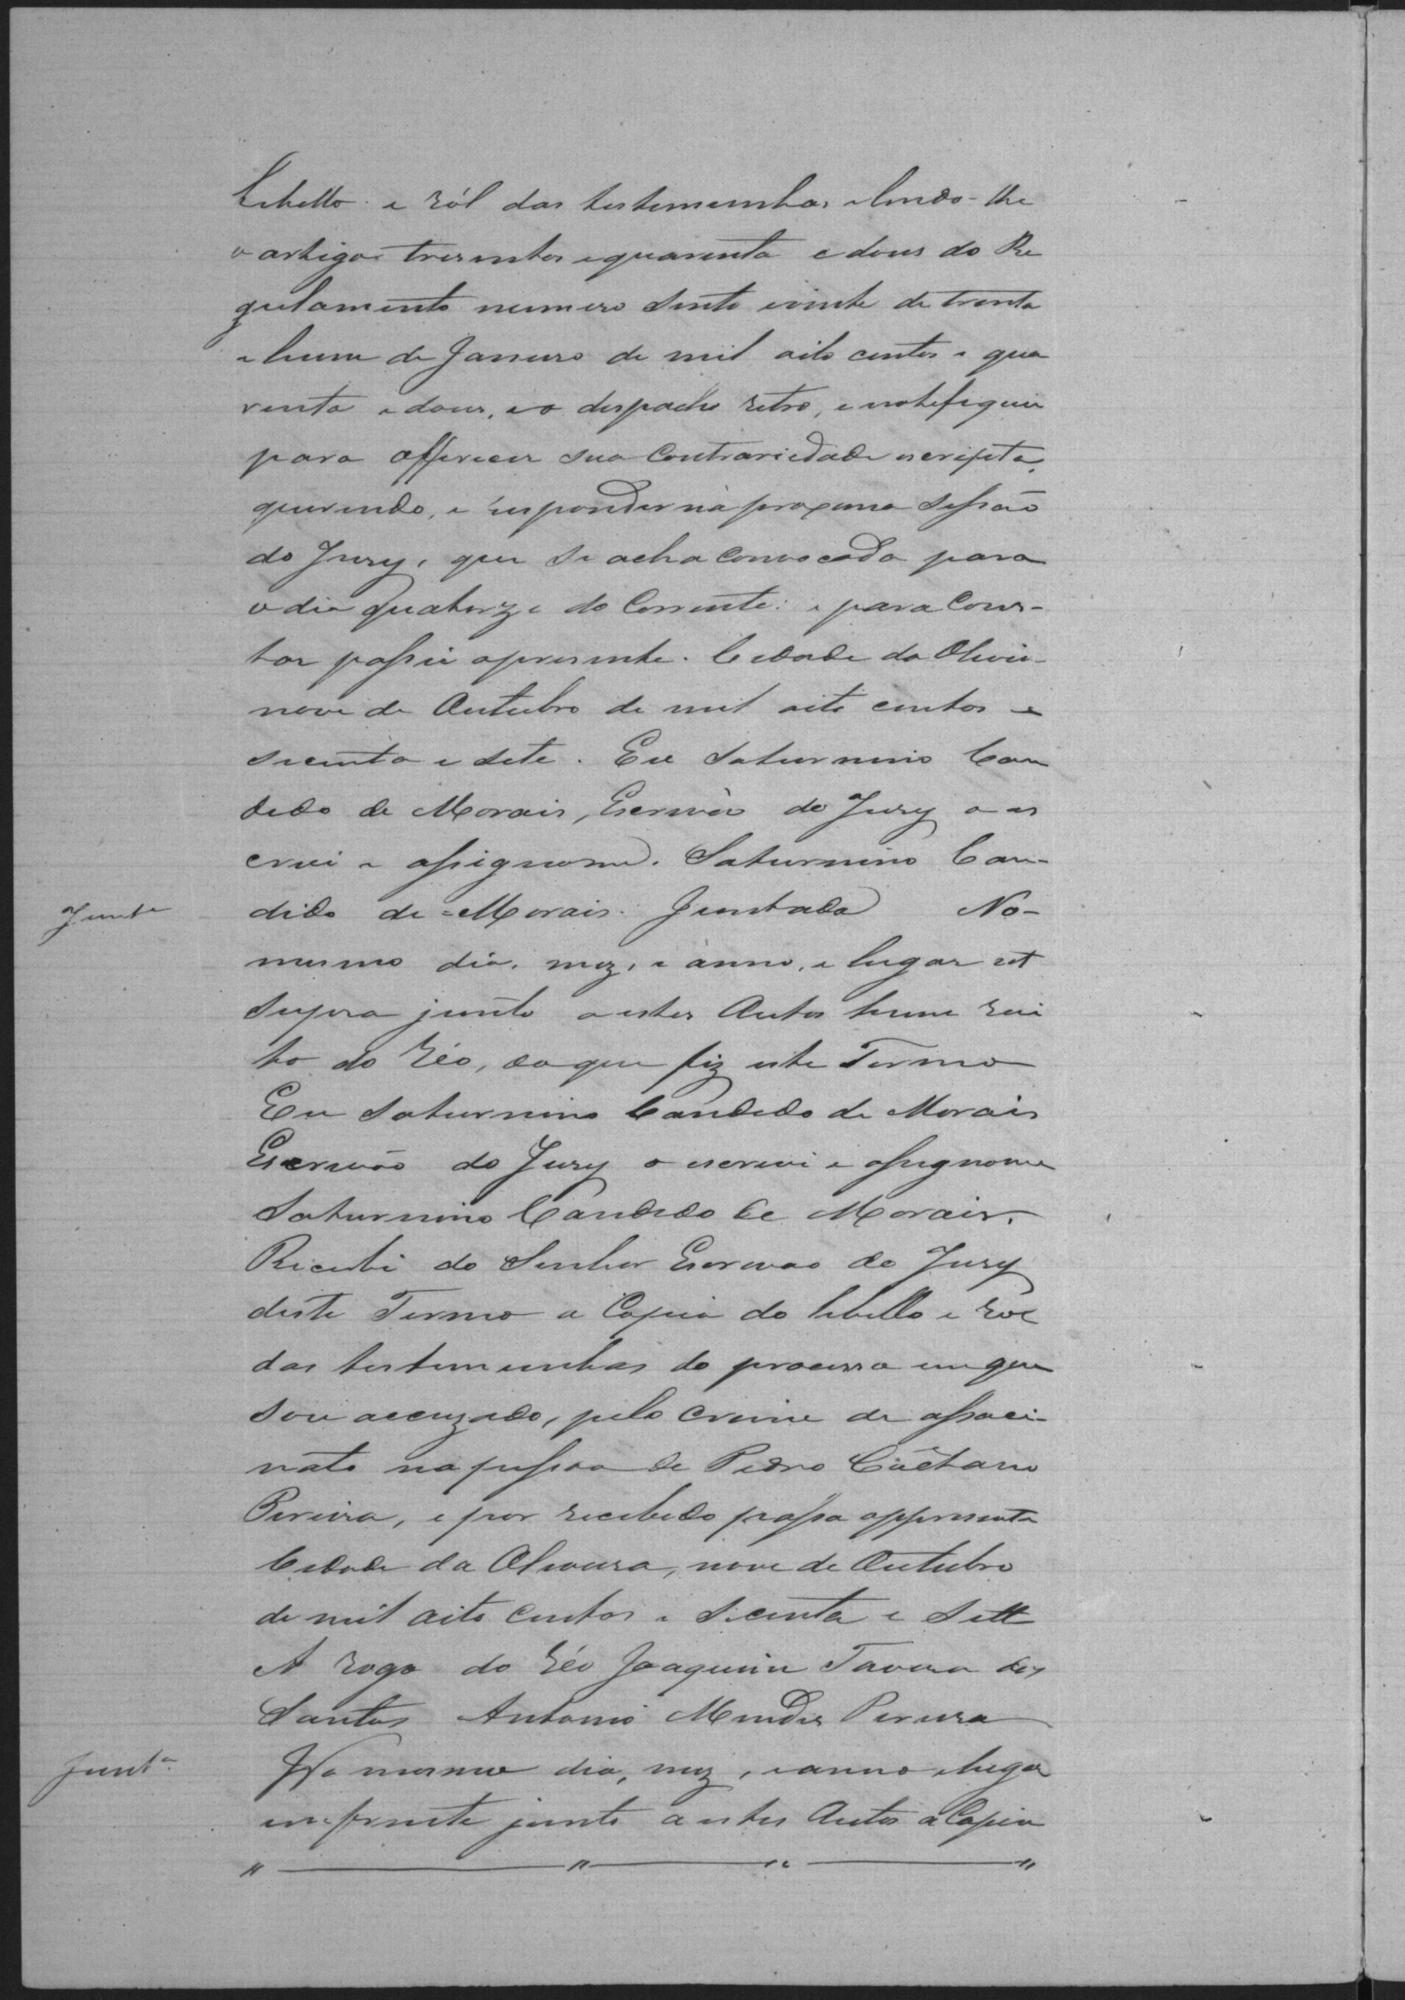 Libello e ról das testemunhas e lendo-lhe
o artigo tresentos e quarenta e dous do Re
gulamento numero sento e vinte de trenta
e hum de Janeiro de mil oito centos e qua
renta e dous, e o despacho retro, e notefiquei
para offerecer sua Contrariedade escripta,
querendo, e responder na proxima sessão
do Jury, que se acha convocada para
o dia quatorze do Corrente: e para Cons-
tar passei apresente. Cidade da Olivei-
nove de Outubro de mil oito centos e
secenta e sete. Eu Saturnino Can
dido de Morais, Escrivão do Jury o es
crivi e assignome. Saturnino Can-
Junta
dido de Morais. Juntada No-
mesmo dia, mez, e anno, e lugar ut
supra junto a estes Autos hum reci
bo do Réo, do que fiz este Termo
Eu Saturnino Candido de Morais
Escrivão do Jury o escrevi e assignome
Saturnino Candido de Morais.
Recebi do Senhor Escrivao do Jury
deste Termo a Copia do libello e rol
das testemunhas do processo em que
sou accuzado, pelo crime de assaci-
nato na pessoa de Pedro Caetano
Pereira, e por recebido passo appresente
Cidade da Oliveira, nove de Outubro
de mil oito centos e secenta e sette
A rogo do Réo Joaquim Tavera dos
Santos Antonio Mendes Pereira
Junta
No mesmo dia, mez, e anno e lugar
em frente junto a estes Autos a Copia